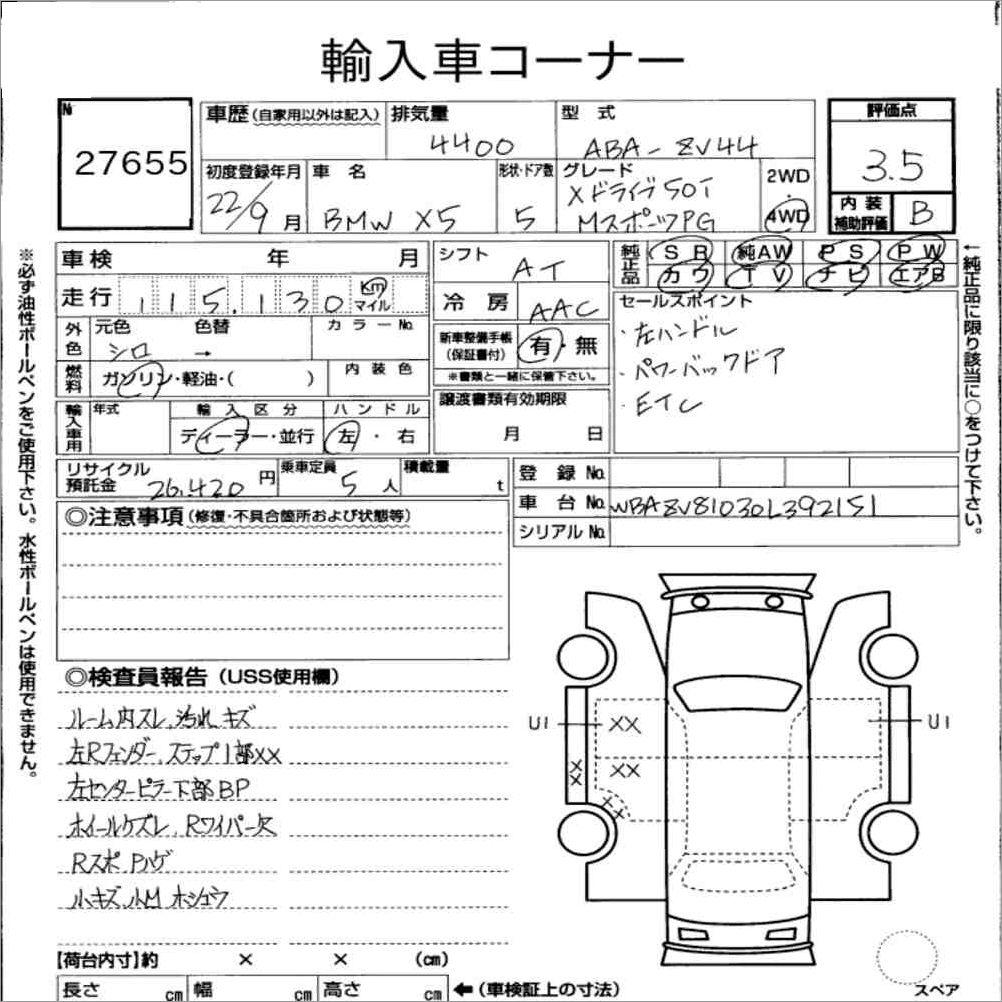 輸入車コーナー
№ 27655
車歴(自家用以外は記入) 排気量 4400
型式 ABA-ZV44
評価点 3.5
初度登録年月 22/9月
車名 BMW X5
形状・ドア数 5
グレード Xドライブ50i MスポーツPG
2WD・4WD
内装補助評価 B
※必ず油性ボールペンをご使用下さい。水性ボールペンは使用できません。
←純正品に限り該当に○をつけて下さい。
車検 年 月
走行 115,130 Km マイル
シフト AT
冷房 AAC
純正品 SR 純AW PS PW
カワ TV ナビ エアB
外色 元色 シロ 色替 → カラーNo.
燃料 ガソリン・軽油・( ) 内装色
新車整備手帳(保証書付) 有・無
※書類と一緒に保管下さい。
セールスポイント
・左ハンドル
・パワーバックドア
・ETC
輸入車用 年式 輸入区分 ディーラー・並行 ハンドル 左・右
譲渡書類有効期限 月 日
リサイクル預託金 26,420円 乗車定員 5人 積載量 t
登録No.
車台No. WBAZV81030L392151
シリアルNo.
◎注意事項(修復・不具合箇所および状態等)
◎検査員報告(USS使用欄)
ルーム内スレ、汚れ、キズ
左Rフェンダー、ステップ1部XX
左センターピラー下部BP
ホイールケズレ、Rワイパー欠
Rスポ Pハゲ
小キズ、小M ホシュウ
U1 XX U1
XX
XX
XX
【荷台内寸】約 × × (cm)
長さ cm 幅 cm 高さ cm ←(車検証上の寸法)
スペア